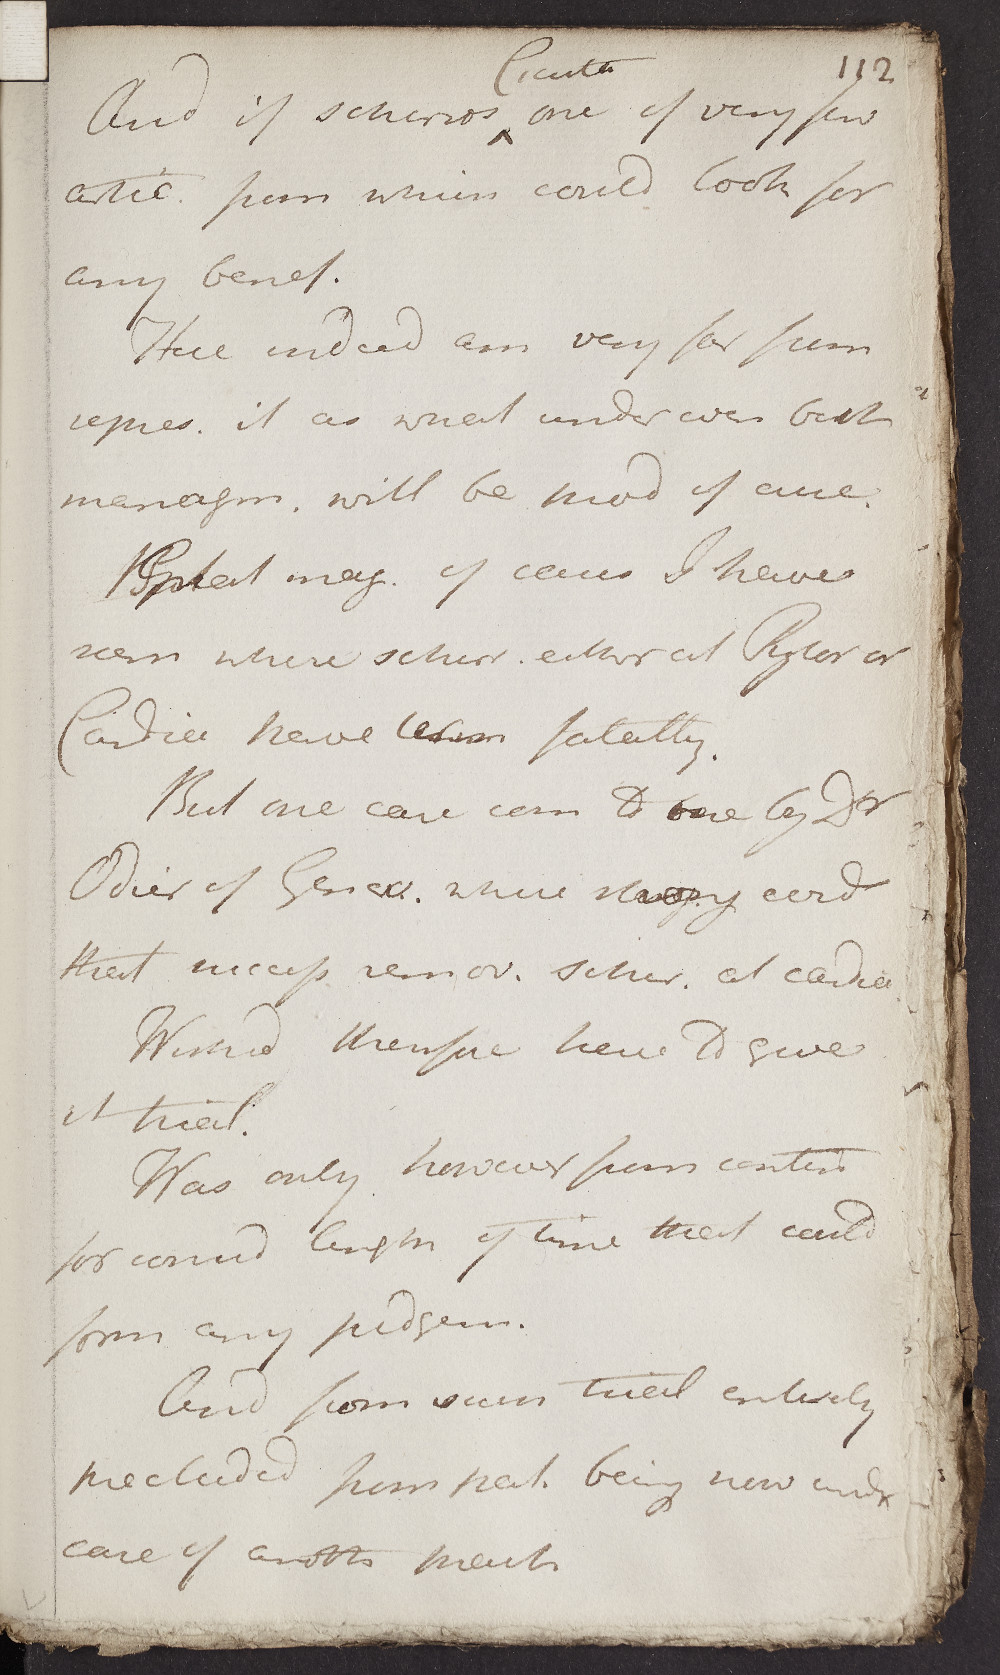 112
Cicuta
And if schirros ^ one of very few
artic. from which could look for
any benef.
Here indeed am very far from
repres. it as what under even best
managm. will be prod of cure.
Great maj. of cases I have
seen where schirr. either at Pylor or
Cardia have termin fatally.
But one case com to me by Dr
Odier of Genev. where strong evid
that success remov. schirr. at cardia
Wished therefore here to give
it trial.
Was only however from contin
for consid length of time that could
form any judgem.
And from such trial entirely
precluded from pat. being now under
care of anoth pract